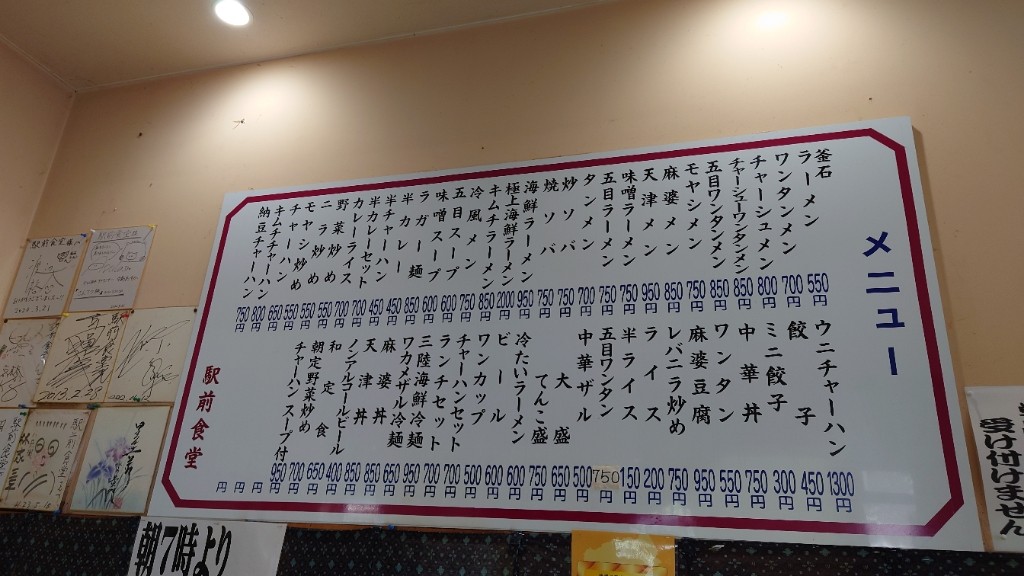 メニュー
釜石ラーメン 550円
ワンタンメン 700円
チャーシュメン 800円
チャーシューワンタンメン 850円
五目ワンタンメン 850円
モヤシメン 750円
麻婆メン 850円
天津メン 950円
味噌ラーメン 750円
五目ラーメン 750円
タンメン 700円
炒ソバ 750円
焼ソバ 750円
海鮮ラーメン 950円
極上海鮮ラーメン 2000円
キムチラーメン 850円
冷風メン 750円
五目スープ 600円
味噌スープ 600円
ラガー麺 850円
半カレー 450円
半チャーハン 450円
半カレーセット 700円
カレーライス 700円
野菜炒め 550円
ニラ炒め 550円
モヤシ炒め 550円
チャーハン 650円
キムチチャーハン 800円
納豆チャーハン 750円
ウニチャーハン 1300円
餃子 450円
ミニ餃子 300円
中華丼 750円
ワンタン 550円
麻婆豆腐 950円
レバニラ炒め 750円
ライス 200円
半ライス 150円
五目ワンタン 750円
中華ザル 500円
大盛 650円
てんこ盛 750円
冷たいラーメン 600円
ビール 600円
ワンカップ 500円
チャーハンセット 700円
ランチセット 700円
三陸海鮮冷麺 950円
ワカメザル冷麺 650円
麻婆丼 850円
天津丼 850円
ノンアルコールビール 400円
和定食 650円
朝定野菜炒め 700円
チャーハンスープ付 950円
円
円
円
駅前食堂
受け付けません
朝7時より